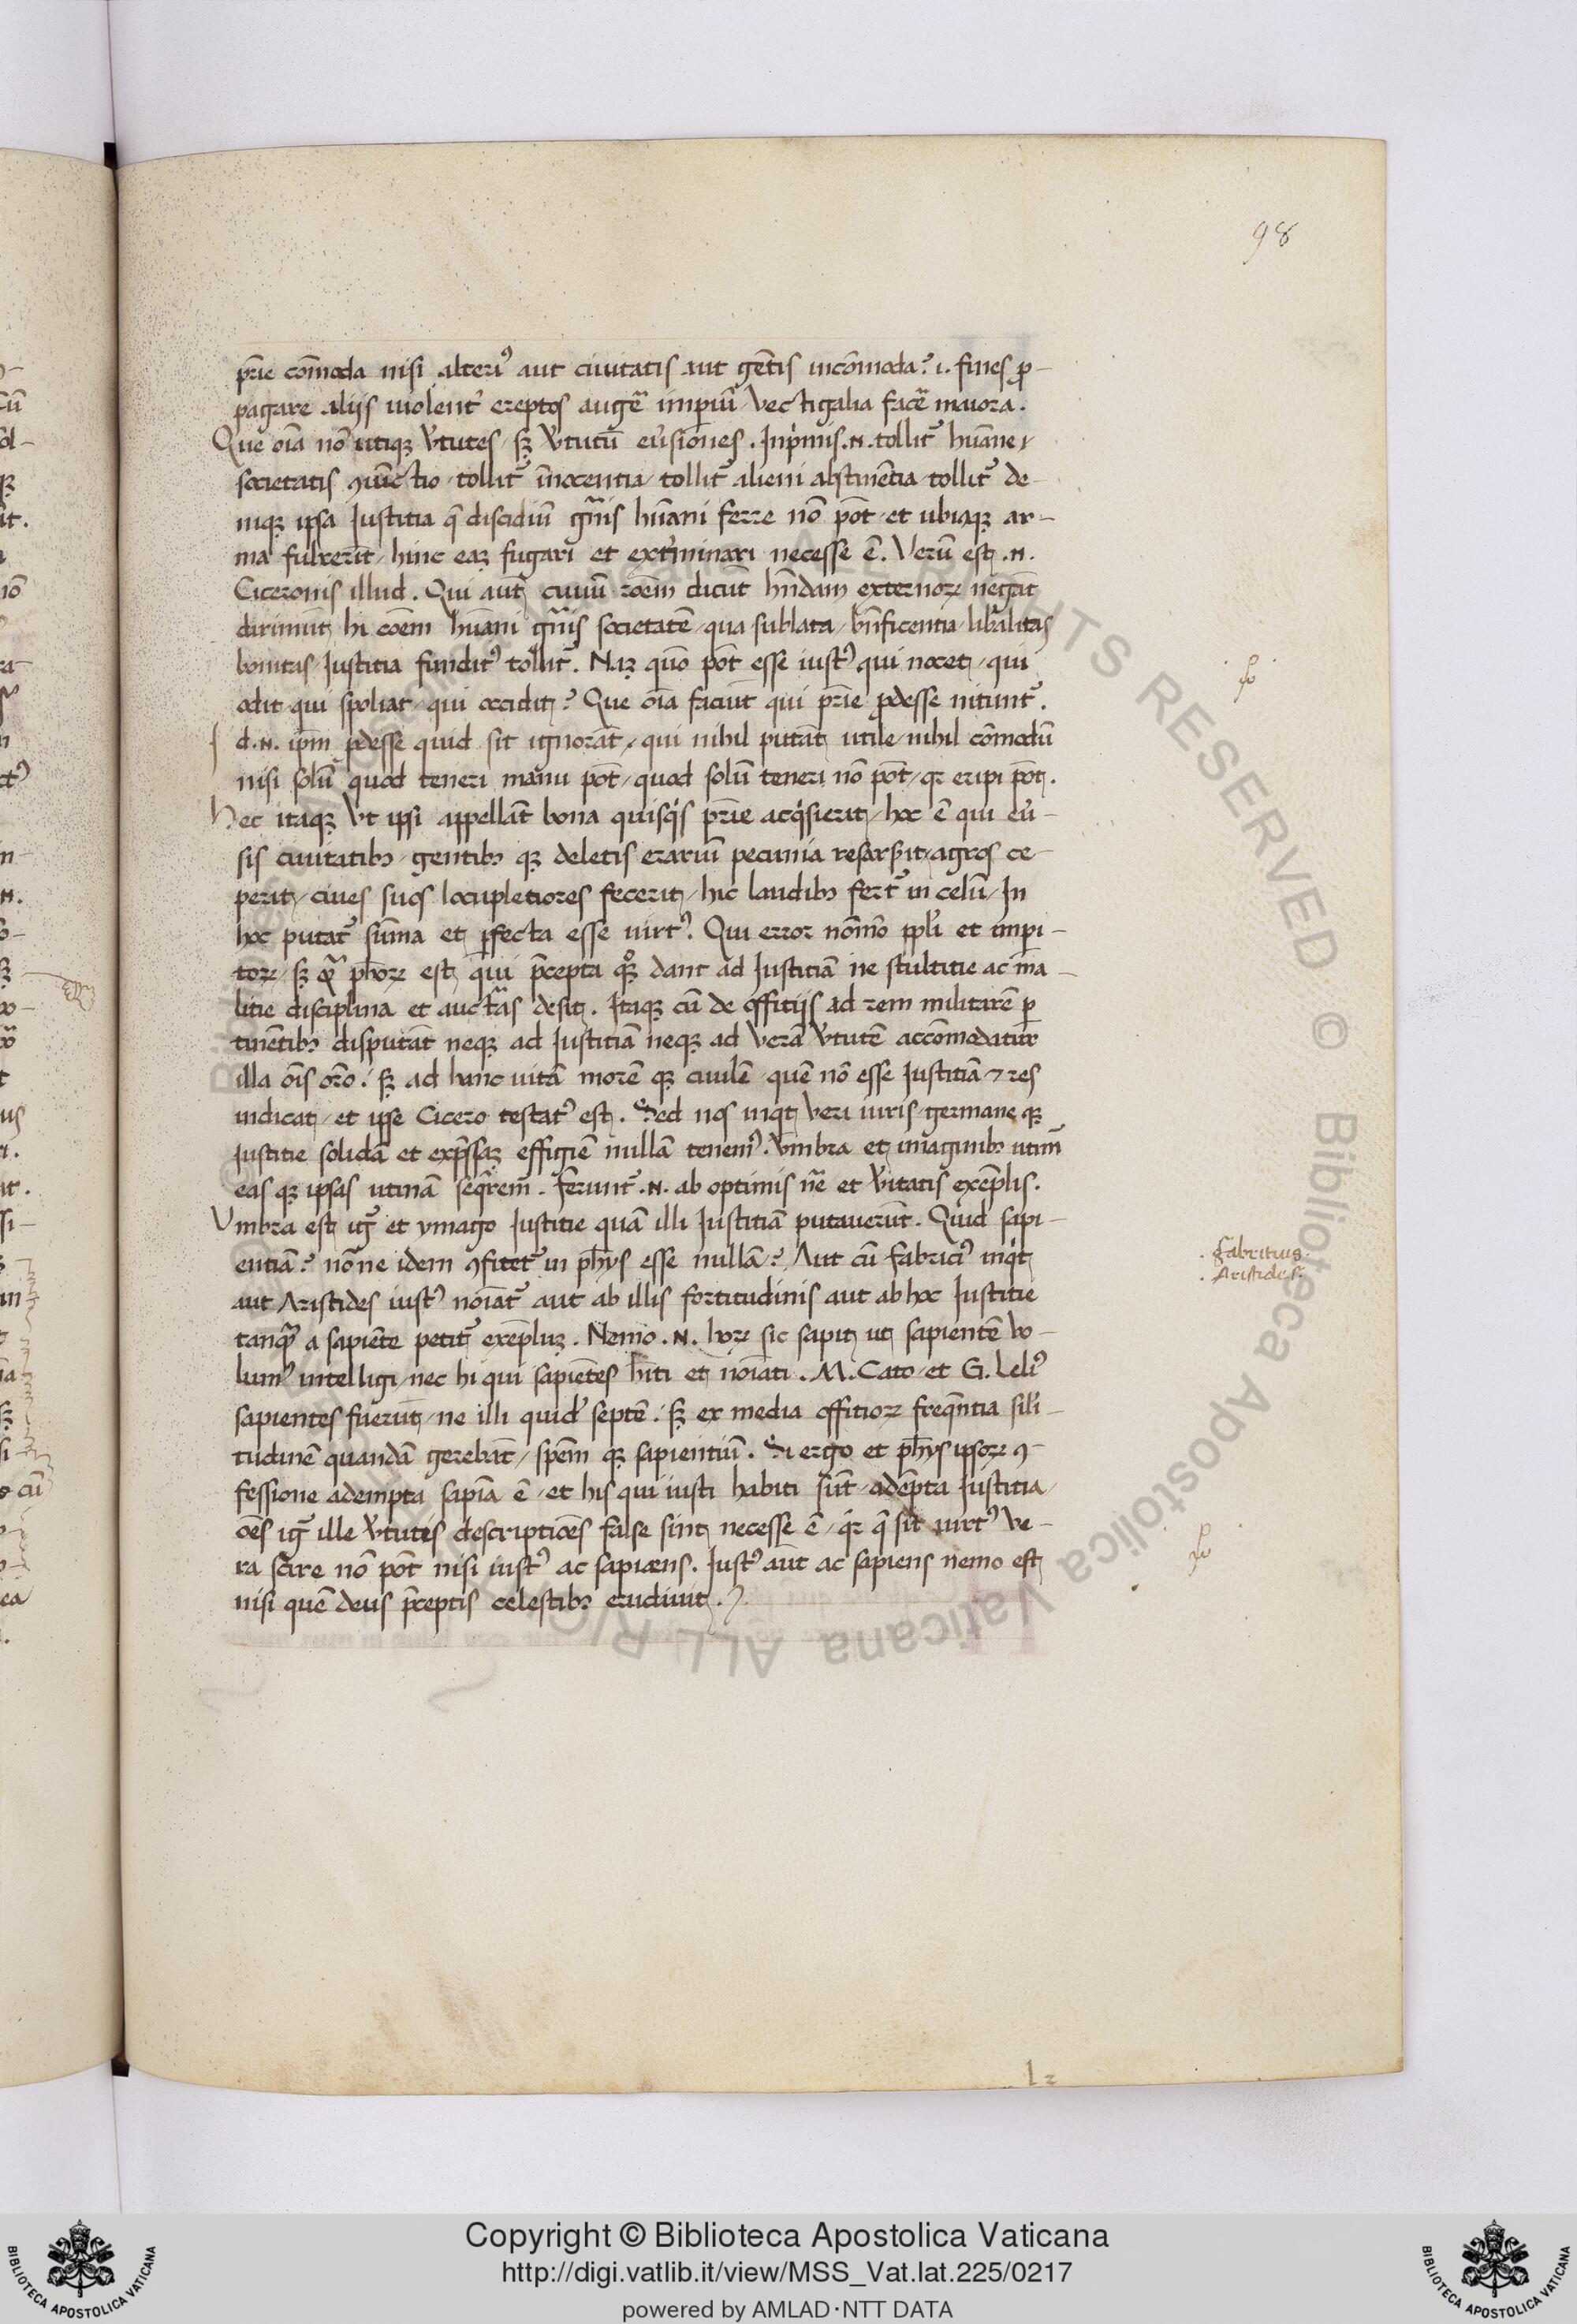 98
pr̄ie com̄oda nisi alteriꝰ aut ciuitatis aut gēt̄is incōmoda? .i. fines ꝓ-
pagare alijs uiolent̓ ereptos augē imperiū vectigalia facē maiora.
Que oīa nō utiqꝫ v̓tutes / sꝫ v̓tutū eu̓siones. Inp̓mis .n. tollit᷑ hūane
societatis ꝯiūctio / tollit᷑ īnocentia / tollit᷑ alieni abstinētia tollit᷑ de-
niqꝫ ipsa Iustitia q̄ discidiū gn̄is hūani ferre nō pōt / et ubiqꝫ ar-
ma fulxerīt / hinc eaꝫ fugari et ext̓minari necesse ē. Verū est .n.
Ciceronis illud. Qui aut ciuiū rōem dicūt hn̄dam externoꝝ negāt
dirimunt hi cōem hūani gn̄is societatē / qua sublata / bn̄ficentia / libalitas
bonitas / Iustitia funditꝰ tollit᷑. Naꝫ quō pōt esse iustꝰ qui nocet / qui
odit qui spoliat / qui occidit? Que oīa faciūt qui pr̄ie ꝓdesse nitunt᷑.
I d .n. ip̄m ꝓdesse quid sit ignorāt / qui nihil putāt utile / nihil cōmodū
nisi solū quod teneri manu pōt / quod solū teneri nō pōt / qr eripi pōt.
Hec itaqꝫ vt ipsi appellāt bona quisq̓s pr̄ie acq̓sierit / hoc ē qui eu̓-
sis ciuitatibꝫ / gentibꝫ qꝫ deletis erariū pecunia resarsit / agros ce-
perit / ciues suos locupletiores fecerit / hic laudibꝫ fert᷑ in celū / In
hoc putat᷑ sūma et ꝑfecta esse uirtꝰ. Qui error nōmō ppl̓i et imꝑi-
toꝝ / sꝫ q̄ ph̄oꝝ est qui p̄cepta qꝫ dant ad Iustitiā ne stultitie ac ma-
litie disciplina et auctās desit. Itaqꝫ cū de offitijs ad rem militarē ꝑ
tinētibꝫ disputāt neqꝫ ad Iustitiā neqꝫ ad verā v̓tutē accōmodatur
illa oīs orō / sꝫ ad hanc uitā morē qꝫ ciuilē quē nō esse Iustitiā ⁊ res
indicat / et ipse Cicero testatꝰ est. Sed nos inqt veri iuris / germane qꝫ
Iustitie solidā et exp̄ssaꝫ effigiē nullā tenemꝰ. vmbra et imaginibꝫ utim̄
eas qꝫ ipsas utinā seq̄rem̄. ferunt᷑ .n. ab optimis nē et v̓itatis exēplis.
Vmbra est ig̓ et ymago Iustitie quā illi Iustitiā putauerūt. Quid sapi-
entiā? nōne idem ꝯfitet᷑ in ph̄ys esse nullā? Aut cū fabriciꝰ inq̓t
aut Aristides iustꝰ noīat᷑ aut ab illis fortitudinis aut ab hoc Iustitie
tanqꝫ a sapiēte petit᷑ exēpluꝫ. Nemo .n. hoꝝ sic sapit ut sapientē vo-
lumꝰ intelligi / nec hi qui sapiētes h̄iti et noīati. M. Cato et G. Leliꝰ
sapientes fuerūt / ne illi quidē septē / sꝫ ex media offitioꝝ freq̄ntia sil̓i-
tudinē quandā gerebāt / spēm qꝫ sapientiū. Si ergo et ph̄ys ipsoꝝ ꝯ-
fessione adempta sapīa ē / et his qui iusti habiti sūt / adēpta Iustitia /
oēs ig̓ ille v̓tutis descriptiōes false sint necesse ē / q̓r q̄ sit uirtꝰ ve-
ra scire nō pōt nisi iustꝰ ac sapiens. Iustꝰ aūt ac sapiens nemo est
nisi quē deus p̄ceptis celestibꝫ erudiuit.
. fabritius.
. Aristides.
Copyright © Biblioteca Apostolica Vaticana
http://digi.vatlib.it/view/MSS_Vat.lat.225/0217
powered by AMLAD·NTT DATA
BIBLIOTECA APOSTOLICA VATICANA
BIBLIOTECA APOSTOLICA VATICANA